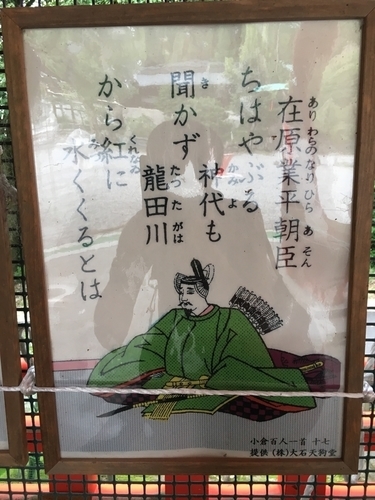 在原業平朝臣
ありわらのなりひらあそん
ちはやぶる
神代も
かみよ
聞かず
き
龍田川
たつたがは
から紅に
くれなゐ
水くくるとは
みづ
小倉百人一首 十七
提供 (株)大石天狗堂